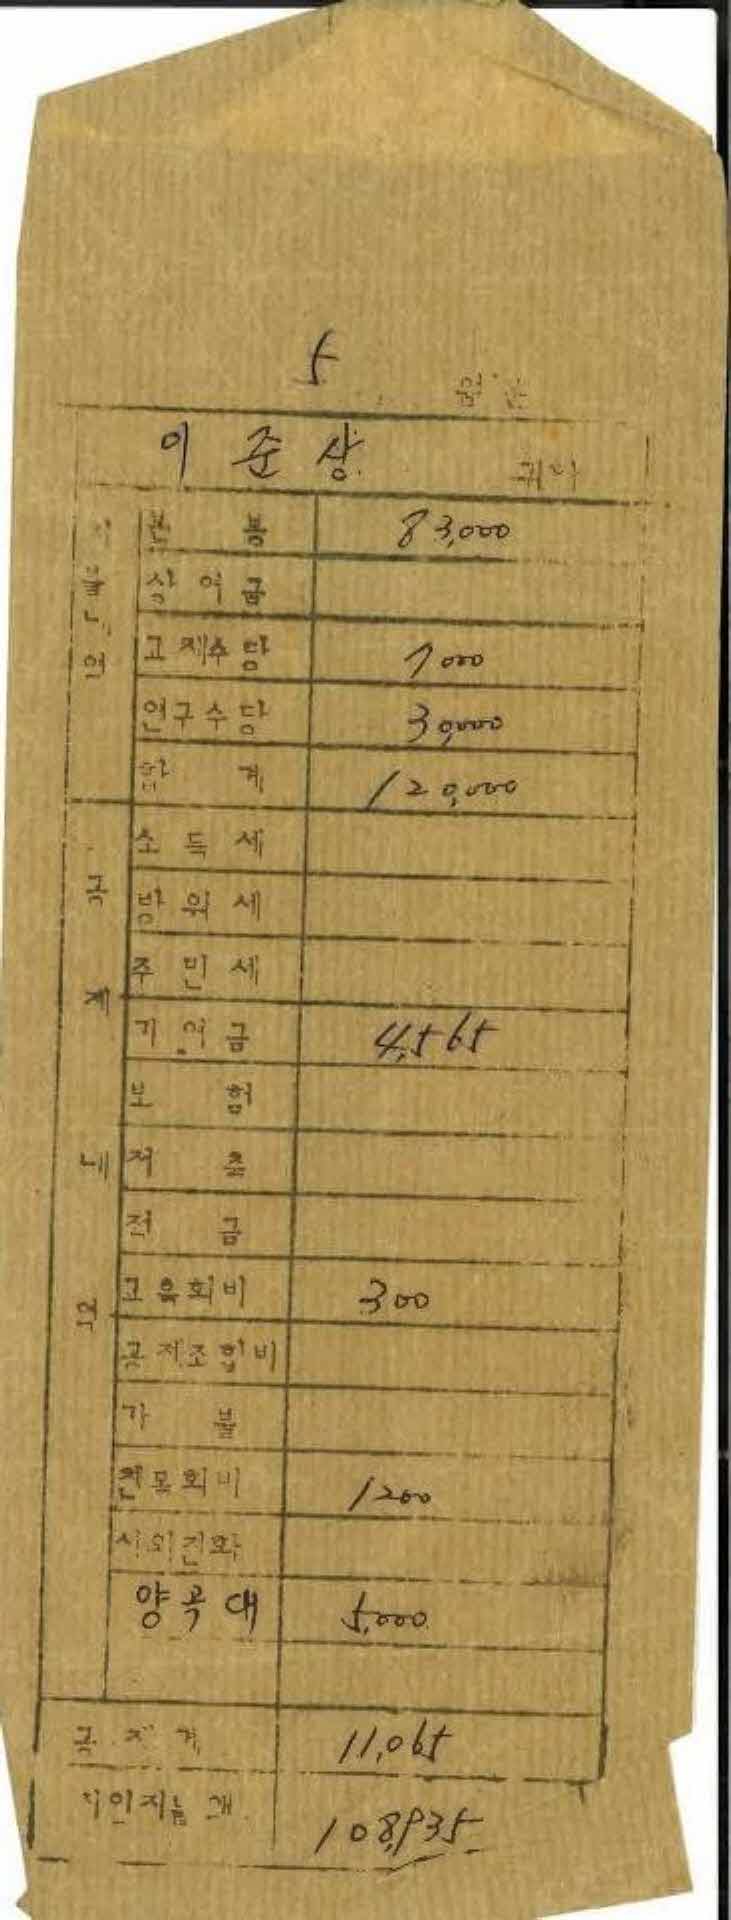 5 월분
이준상 귀하
지불난의
본봉 83,000
상여금
교재수당 7000
연구수당 30,000
합계 120,000
공제내역
소득세
방위세
주민세
기여금 4,565
보험
저축
적금
교육회비 300
공제조합비
가불
친목회비 1200
시외전화
양곡대 5,000
공제계 11,065
차인지불액 108,935